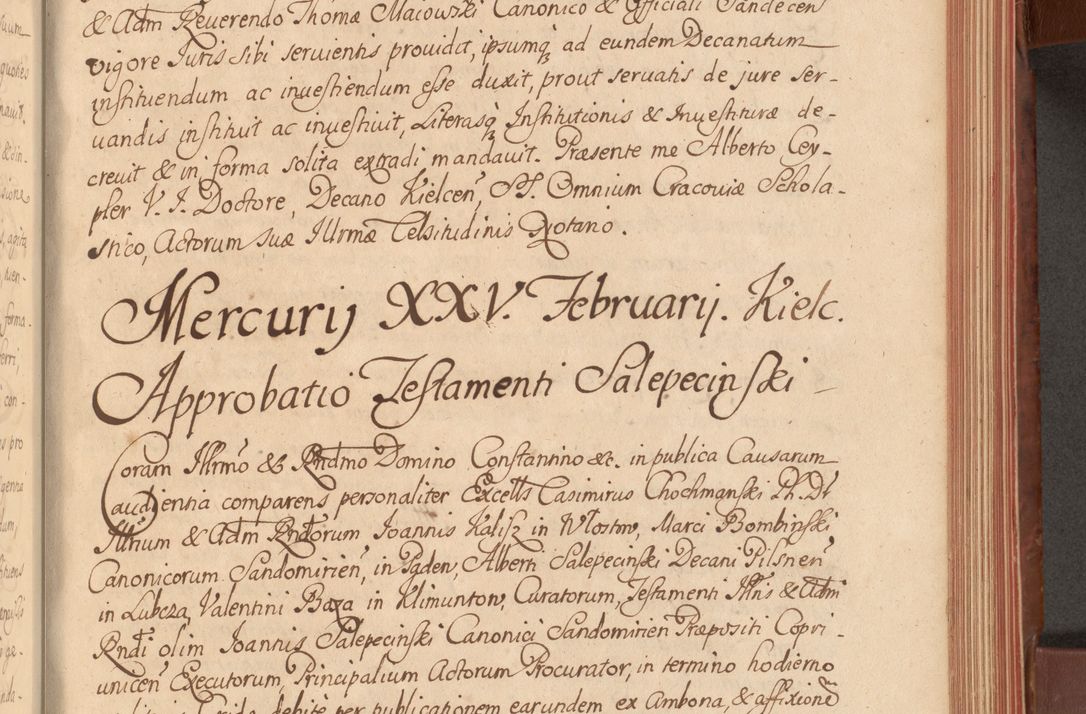 & Adm Reverendo Thomæ Maiowski Canonico & Officiali Sandecen
vigore Juris sibi servientis providit, ipsumq ad eundem Decanatum
instituendum ac investiendum esse duxit, prout servatis de jure ser-
vandis instituit ac investivit, Literasq Institutionis & Investituræ de-
crevit & in forma solita extradi mandavit. Præsente me Alberto Cey-
pler V. J. Doctore, Decano Kielcen, SS. Omnium Cracoviæ Schola-
stico, Actorum suæ Illrmæ Celsitudinis Notario.
Mercurij XXV. Februarij. Kielc.
Approbatio Testamenti Salepecinski
Coram Illrmo & Rndmo Domino Constantino &c. in publica Causarum
audientia comparens personaliter Excells Casimirus Chochmanski Ph. Dr
Illrium & Adm Rndorum Joannis Kalisz in Wlostow, Marci Bombinski
Canonicorum Sandomirien, in Gaden, Alberti Salepecinski Decani Pilsnen
in Lubcza, Valentini Baza in Klimuntow, Curatorum, Testamenti Illris & Adm
Rndi olim Joannis Salepecinski Canonici Sandomirien Præpositi Copri-
unicen Executorum, Principalium Actorum Procurator, in termino hodierno
debite per publicationem earundem ex Ambona, & affixione